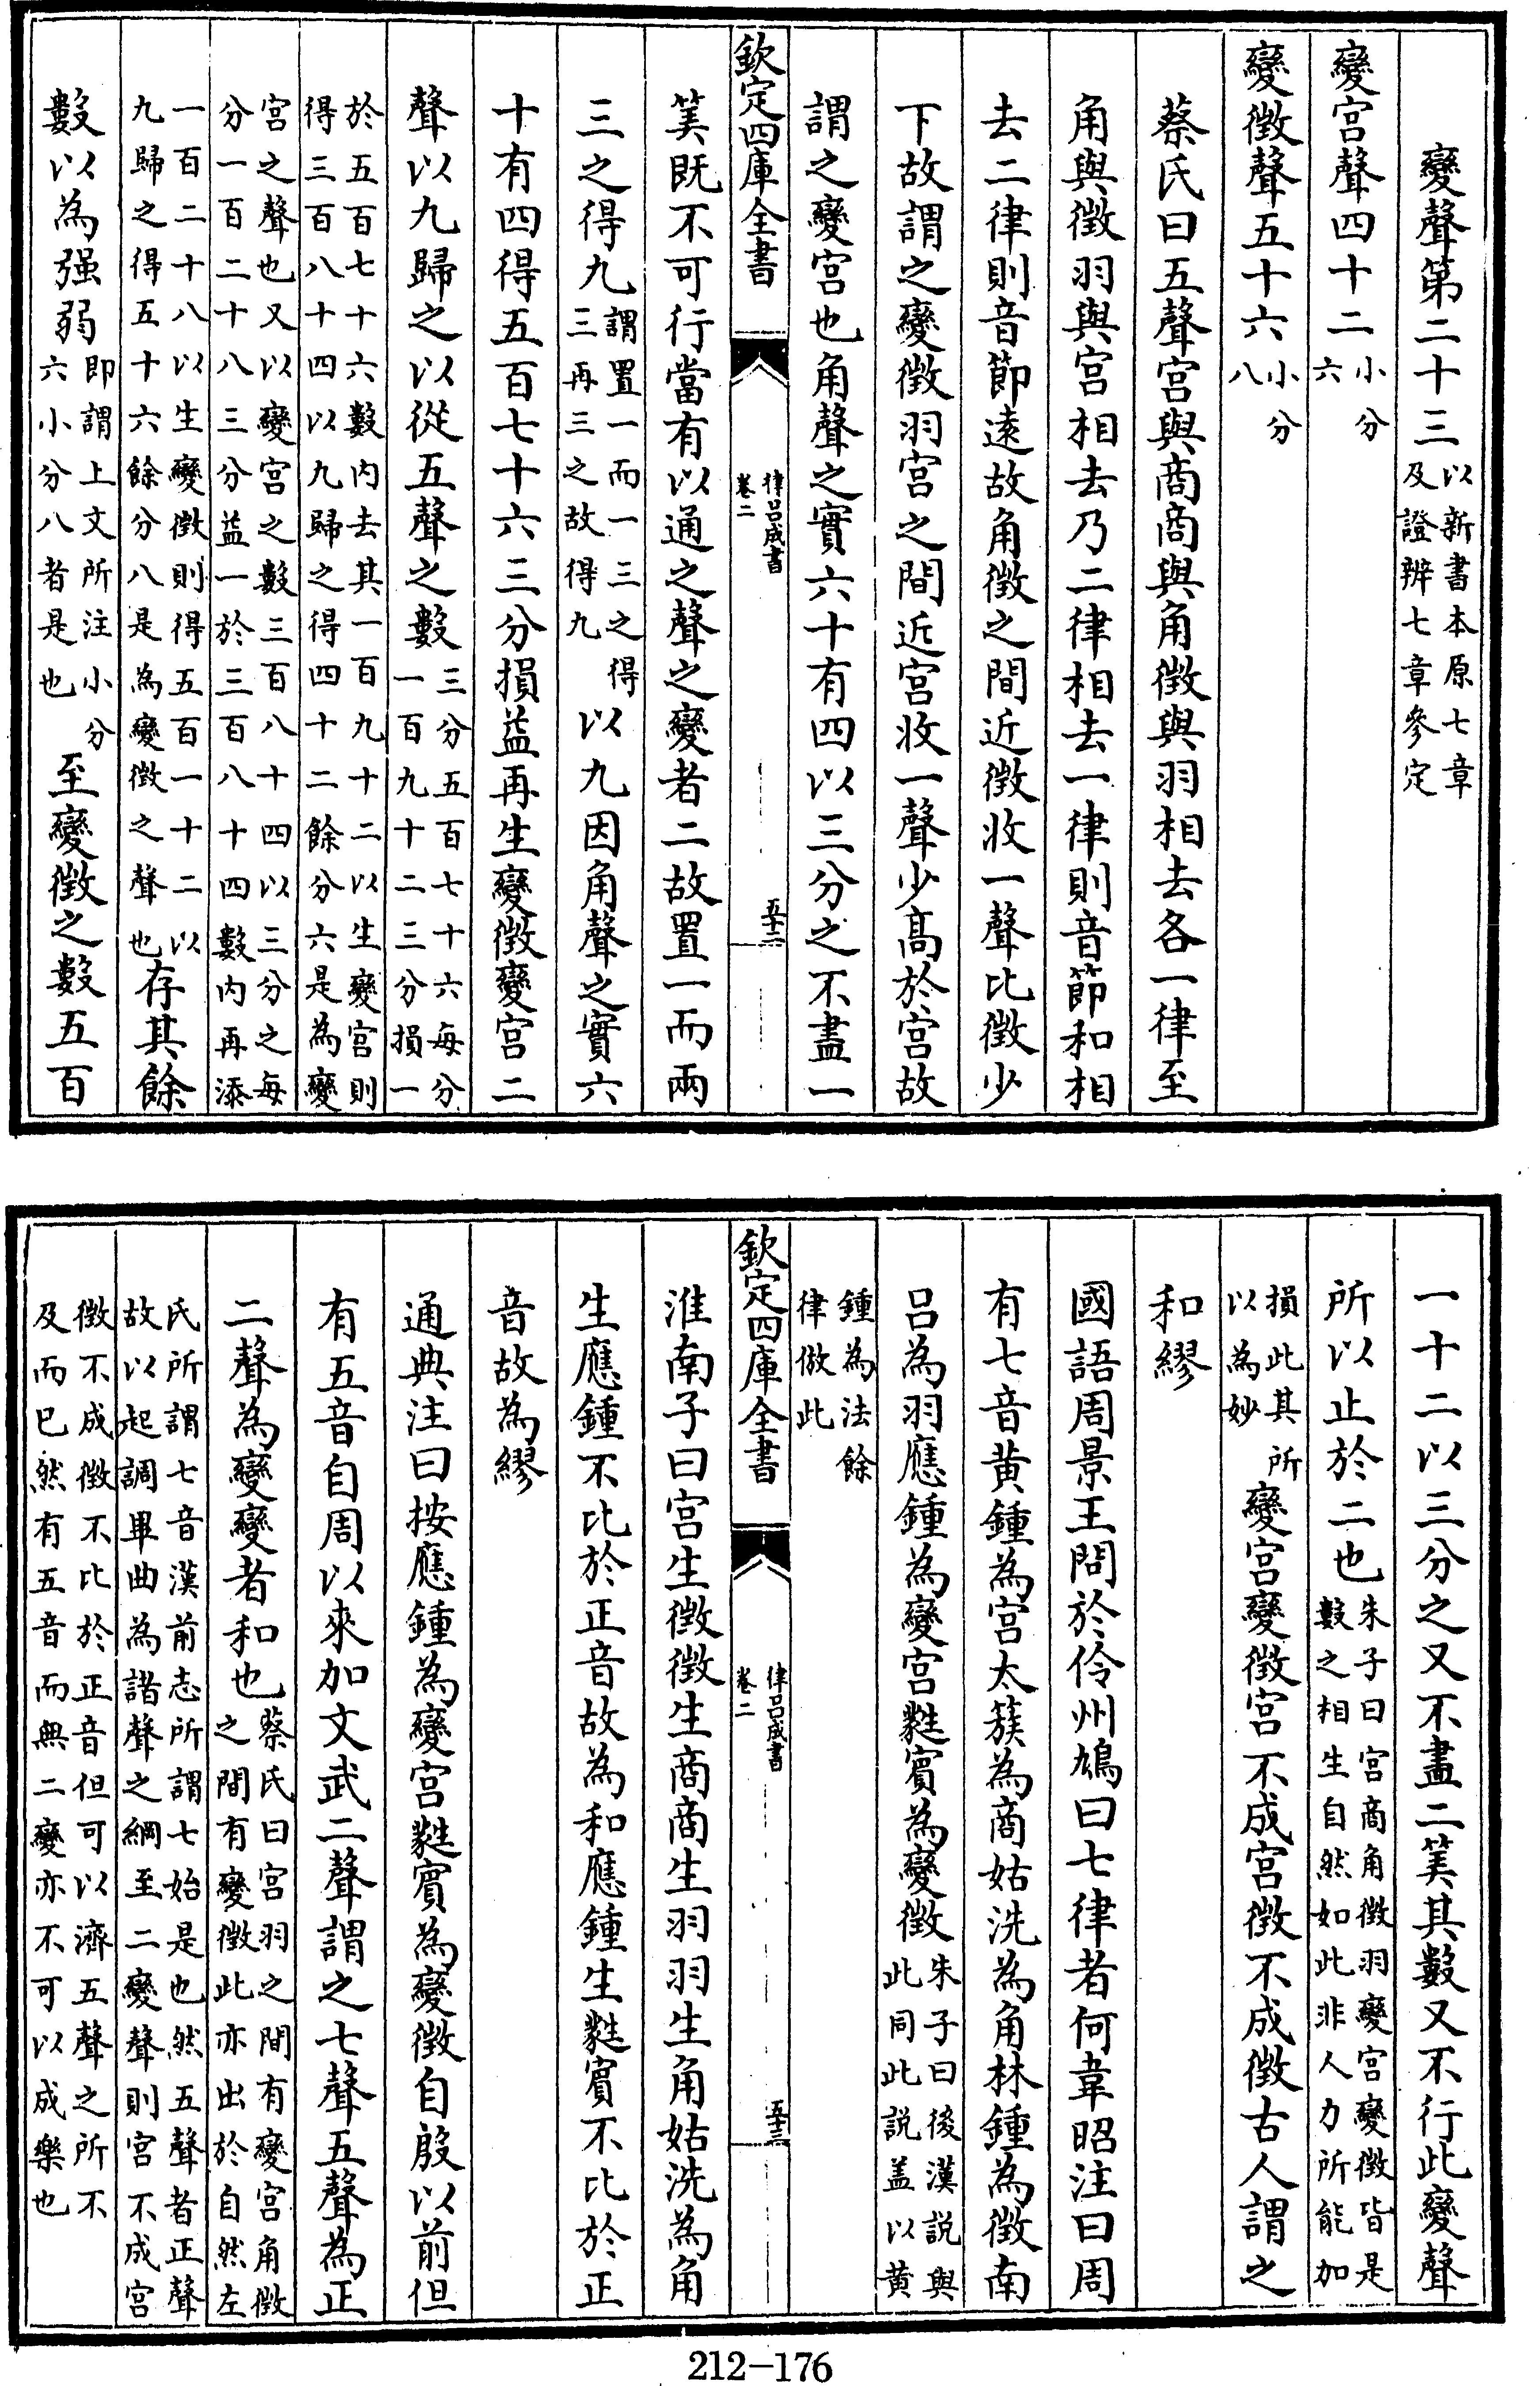 變聲第二十三以新書本原七章及證辨七章參定
變宮聲四十二小分六
變徵聲五十六小分八
蔡氏曰五聲宮與商商與角徵與羽相去各一律至
角與徵羽與宮相去乃二律相去一律則音節和相
去二律則音節遠故角徵之間近徵收一聲比徵少
下故謂之變徵羽宮之間近宮收一聲少高於宮故
謂之變宮也角聲之實六十有四以三分之不盡一
欽定四庫全書
律呂成書
卷二
五十二
筭既不可行當有以通之聲之變者二故置一而兩
三之得九謂置一而一三之得三再三之故得九以九因角聲之實六
十有四得五百七十六三分損益再生變徵變宮二
聲以九歸之以從五聲之數三分五百七十六每分一百九十二三分損一
於五百七十六數內去其一百九十二以生變宮則得三百八十四以九歸之得四十二餘分六是為變
宮之聲也又以變宮之數三百八十四以三分之每分一百二十八三分益一於三百八十四數內再添
一百二十八以生變徵則得五百一十二以九歸之得五十六餘分八是為變徵之聲也存其餘
數以為强弱即謂上文所注小分六小分八者是也至變徵之數五百
一十二以三分之又不盡二筭其數又不行此變聲
所以止於二也朱子曰宮商角徵羽變宮變徵皆是數之相生自然如此非人力所能加
損此其所以為妙變宮變徵宮不成宮徵不成徵古人謂之
和繆
國語周景王問於伶州鳩曰七律者何韋昭注曰周
有七音黃鍾為宮太簇為商姑洗為角林鍾為徵南
呂為羽應鍾為變宮蕤賓為變徵朱子曰後漢説與此同此説盖以黃
鍾為法餘律倣此
欽定四庫全書
律呂成書
卷二
五十三
淮南子曰宮生徵徵生商商生羽羽生角姑洗為角
生應鍾不比於正音故為和應鍾生蕤賓不比於正
音故為繆
通典注曰按應鍾為變宮蕤賓為變徵自殷以前但
有五音自周以來加文武二聲謂之七聲五聲為正
二聲為變變者和也蔡氏曰宮羽之間有變宮角徵之間有變徵此亦出於自然左
氏所謂七音漢前志所謂七始是也然五聲者正聲故以起調畢曲為諧聲之綱至二變聲則宮不成宮
徵不成徵不比於正音但可以濟五聲之所不及而已然有五音而無二變亦不可以成樂也
212-176